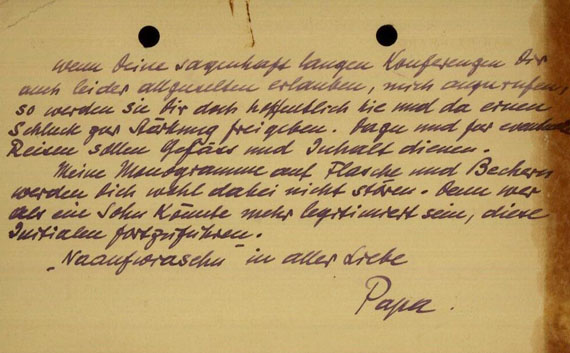 wenn Deine sagenhaft langen Konferenzen Dir
auch leider allzuselten erlauben, mich anzurufen,
so werden sie Dir doch hoffentlich hie und da einen
Schluck zur Stärkung freigeben. Dazu und for
Reisen sollen Gefäss und Inhalt dienen.
Meine Monogramme auf Flasche und Bechern
werden Dich wohl dabei nicht stören. Denn wer
als ein Sohn könnte mehr legitimiert sein, diese
Initialen fortzuführen.
in aller Liebe
Papa.